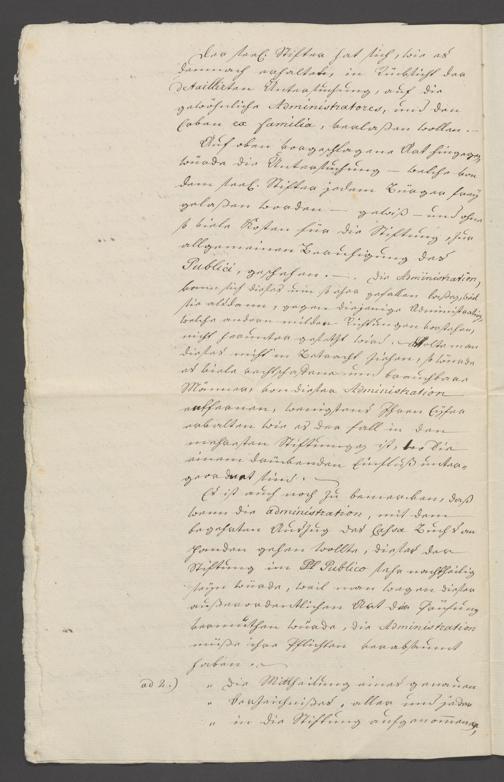 Der seel. Stifter hat sich, wie es
demnach erhaltet, in Rücksicht der
detaillirten Untersuchung, auf die
gewöhnliche Administratores, und den
Erben ex familia, verlaßen wollen. —
Auf oben vorgeschlagene Art hingegen
würde die Untersuchung — welche von
dem seel. Stifter jedem Bürger frey
gelaßen worden — gewiß — und ohne
so viele Kosten für die Stiftung, zur
allgemeinen Beruhigung des
Publici, geschehen. — Die Administration,
kann sich dieses um so eher gefallen laßen, weil
sie alsdann, gegen diejenige Administration,
welche andern milden Stiftungen vorstehen,
nicht herunter gesetzt wird. Wollte man
dieses nicht in Betracht ziehen, so würde
es viele rechtschaffene und brauchbare
Männer, von dieser Administration
entfernen, wenigstens Ihren Eyfer
erkalten wie es der Fall in den
mehresten Stiftungen ist, die
einem drückenden Einfluß unter-
geordnet sind. —
Es ist auch noch zu bemerken, daß
wenn die administration, mit dem
begehrten Auszug des Cassa Buchs an
Handen gehen wollte, dieses der
Stiftung im Publico sehr nachtheilig
seyn würde, weil man wegen dieser
außerordentlichen Art der Prüfung
vermuthen würde, die Administration
müße ihre Pflichten verabsäumt
haben. —
ad 2.) " Die Mittheilung eines genauen
" Verzeichnißes, aller und jeder
" in die Stiftung aufgenommenen,